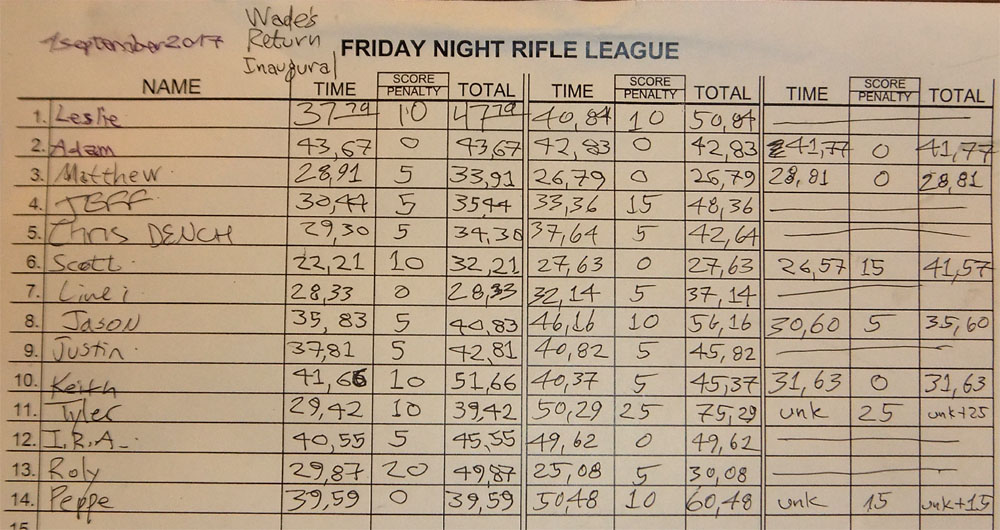 1september2017 Wade's
Return
Inaugural
FRIDAY NIGHT RIFLE LEAGUE
NAME TIME SCORE PENALTY TOTAL TIME SCORE PENALTY TOTAL TIME SCORE PENALTY TOTAL
1. Leslie 37,79 10 47,79 40,84 10 50,84
2. Adam 43,67 0 43,67 42,83 0 42,83 41,77 0 41,77
3. Matthew 28,91 5 33,91 26,79 0 26,79 28,81 0 28,81
4. JEFF 30,44 5 35,44 33,36 15 48,36
5. Chris DENCH 29,30 5 34,30 37,64 5 42,64
6. Scott 22,21 10 32,21 27,63 0 27,63 26,57 15 41,57
7. 28,33 0 28,33 32,14 5 37,14
8. Jason 35,83 5 40,83 46,16 10 56,16 30,60 5 35,60
9. Justin 37,81 5 42,81 40,82 5 45,82
10. Keith 41,66 10 51,66 40,37 5 45,37 31,63 0 31,63
11. Tyler 29,42 10 39,42 50,29 25 75,29 unk 25 unk+25
12. I.R.A. 40,55 5 45,55 49,62 0 49,62
13. Roly 29,87 20 49,87 25,08 5 30,08
14. Peppe 39,59 0 39,59 50,48 10 60,48 unk 15 unk+15
15.